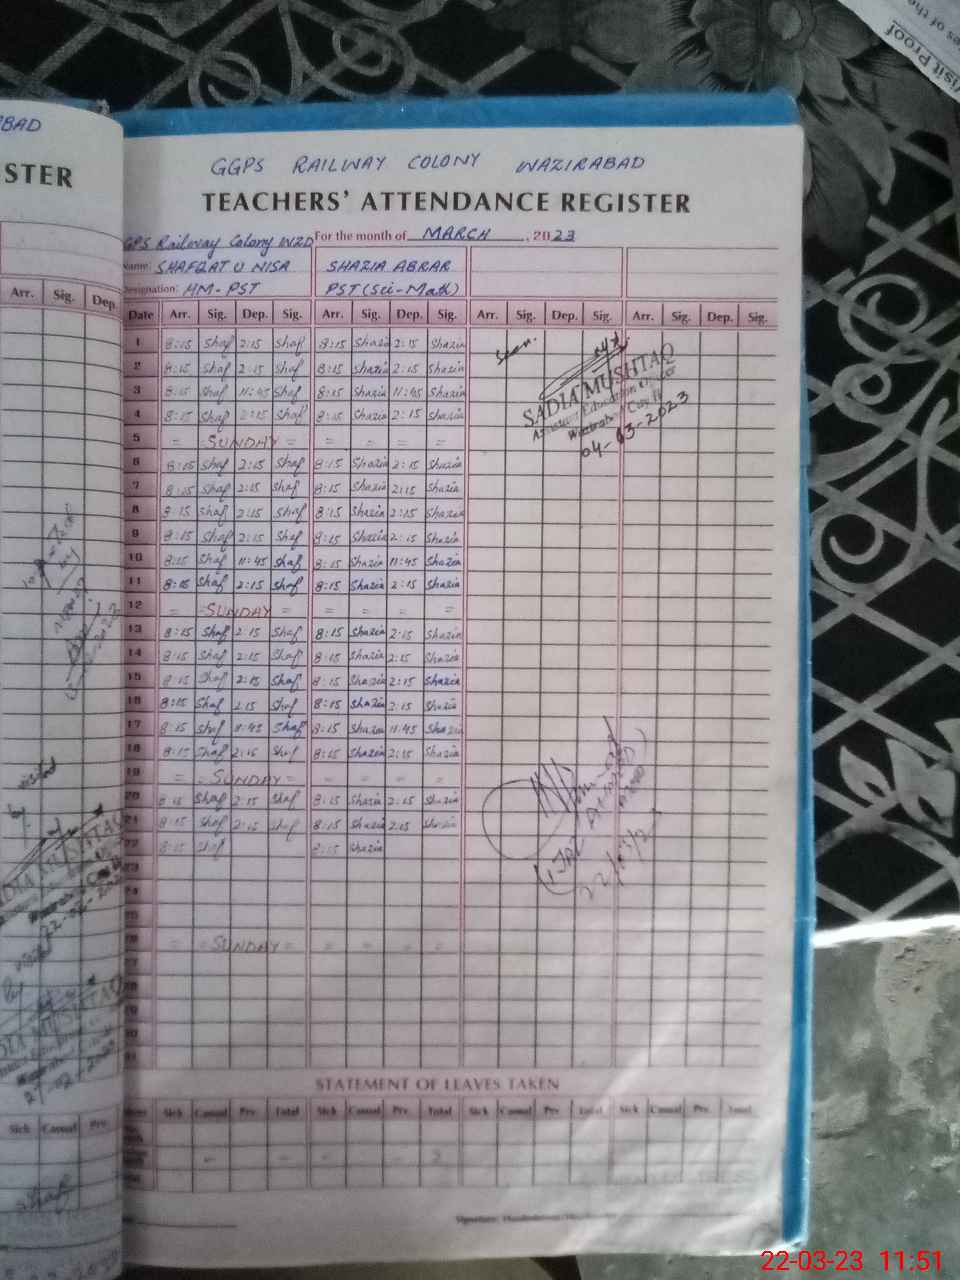 isit Proof
BAD
STER
Arr. Sig. Dep.
visited
by
22-02-202
Sick Casual Prv.
Shaf
GGPS RAILWAY COLONY WAZIRABAD
TEACHERS' ATTENDANCE REGISTER
GPS Railway Colony WZD For the month of MARCH, 2023
Name: SHAFQAT U NISA SHAZIA ABRAR
Designation: HM-PST PST (Sci-Math)
Date Arr. Sig. Dep. Sig. Arr. Sig. Dep. Sig. Arr. Sig. Dep. Sig. Arr. Sig. Dep. Sig.
1 8:15 Shaf 2:15 Shaf 8:15 Shazia 2:15 Shazia
2 8:15 Shaf 2:15 Shaf 8:15 Shazia 2:15 Shazia
3 8:15 Shaf 11:45 Shaf 8:15 Shazia 11:45 Shazia
4 8:15 Shaf 2:15 Shaf 8:15 Shazia 2:15 Shazia
5 = SUNDAY = = = = =
6 8:15 Shaf 2:15 Shaf 8:15 Shazia 2:15 Shazia
7 8:15 Shaf 2:15 Shaf 8:15 Shazia 2:15 Shazia
8 8:15 Shaf 2:15 Shaf 8:15 Shazia 2:15 Shazia
9 8:15 Shaf 2:15 Shaf 8:15 Shazia 2:15 Shazia
10 8:15 Shaf 11:45 Shaf 8:15 Shazia 11:45 Shazia
11 8:15 Shaf 2:15 Shaf 8:15 Shazia 2:15 Shazia
12 = SUNDAY = = = = =
13 8:15 Shaf 2:15 Shaf 8:15 Shazia 2:15 Shazia
14 8:15 Shaf 2:15 Shaf 8:15 Shazia 2:15 Shazia
15 8:15 Shaf 2:15 Shaf 8:15 Shazia 2:15 Shazia
16 8:15 Shaf 2:15 Shaf 8:15 Shazia 2:15 Shazia
17 8:15 Shaf 11:45 Shaf 8:15 Shazia 11:45 Shazia
18 8:15 Shaf 2:15 Shaf 8:15 Shazia 2:15 Shazia
19 = SUNDAY = = = = =
20 8:15 Shaf 2:15 Shaf 8:15 Shazia 2:15 Shazia
21 8:15 Shaf 2:15 Shaf 8:15 Shazia 2:15 Shazia
22 8:15 Shaf 8:15 Shazia
23
24
25
26 = SUNDAY = = = = =
27
28
29
30
31
Seen.
SADIA MUSHTAQ
Assistant Education Officer
04-03-2023
22/03/23
STATEMENT OF LEAVES TAKEN
Sick Casual Prv. Total Sick Casual Prv. Total Sick Casual Prv. Total Sick Casual Prv. Total
22-03-23 11:51